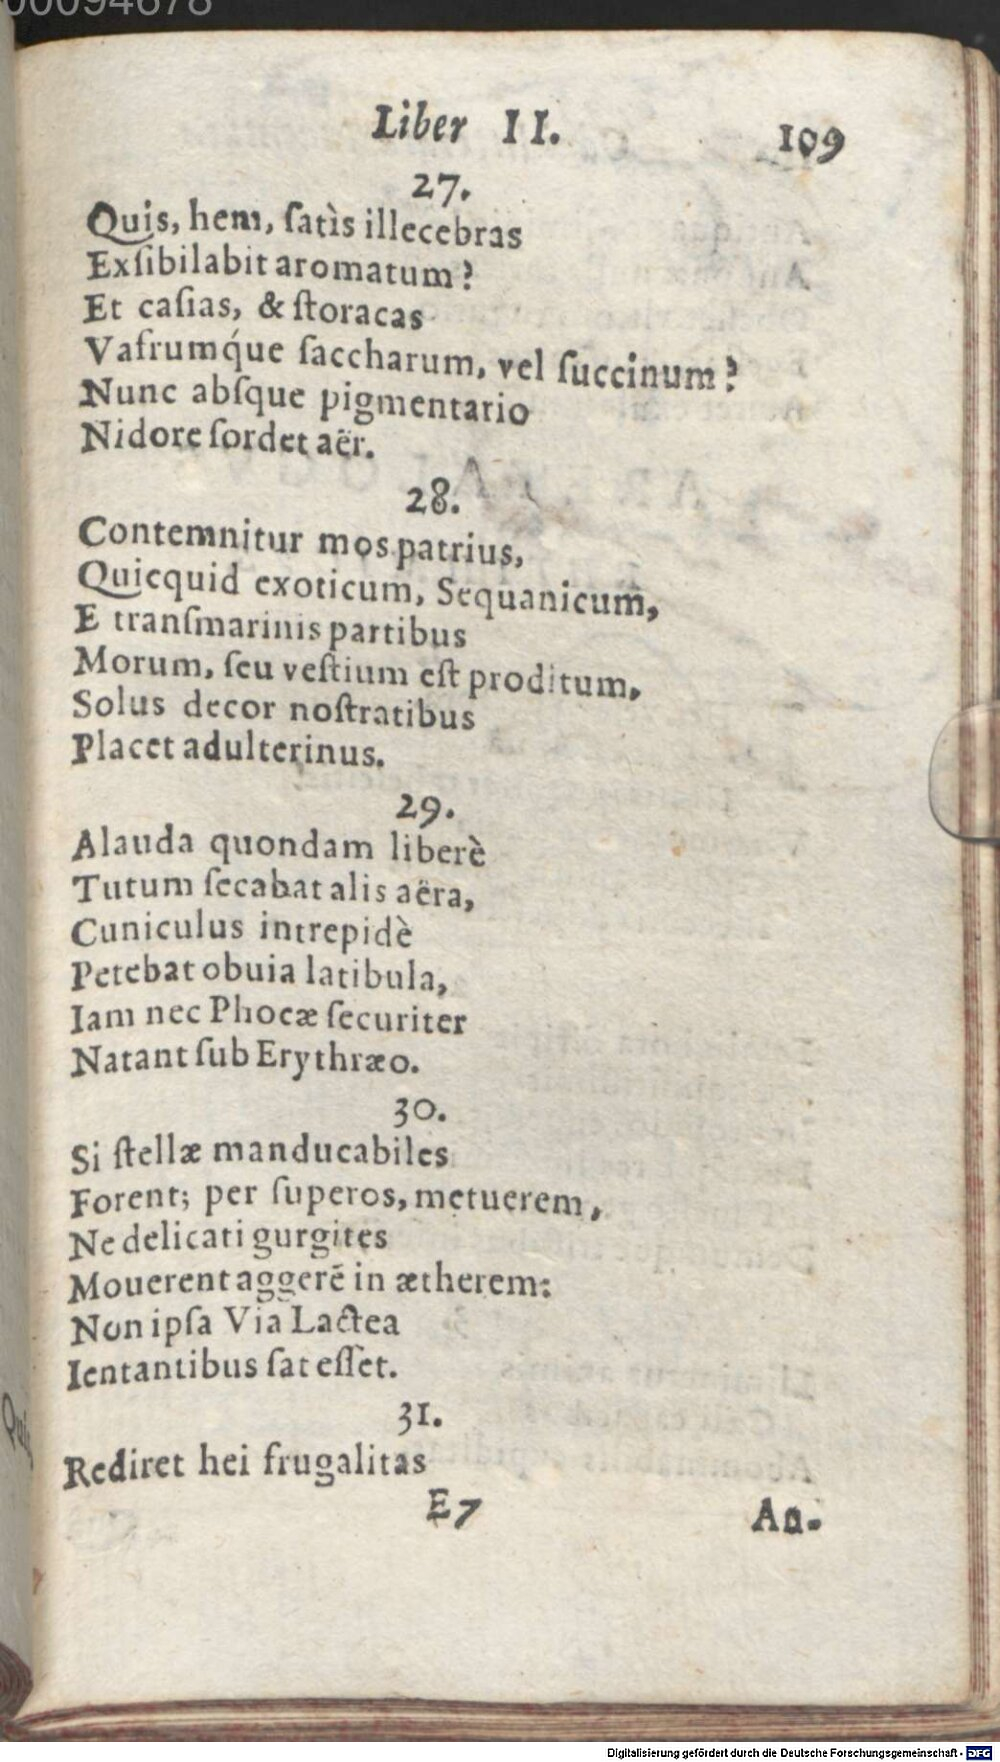 00094678
Liber II. 109
27.
Quis, hem, ſatìs illecebras
Exſibilabit aromatum?
Et caſias, & ſtoracas
Vafrumq́ue ſaccharum, vel ſuccinum?
Nunc abſque pigmentario
Nidore ſordet aër.
28.
Contemnitur mos patrius,
Quicquid exoticum, Sequanicum,
E tranſmarinis partibus
Morum, ſeu veſtium eſt proditum,
Solus decor noſtratibus
Placet adulterinus.
29.
Alauda quondam liberè
Tutum ſecabat alis aëra,
Cuniculus intrepidè
Petebat obuia latibula,
Iam nec Phocæ ſecuriter
Natant ſub Erythræo.
30.
Si ſtellæ manducabiles
Forent; per ſuperos, metuerem,
Ne delicati gurgites
Mouerent aggerē in ætherem:
Non ipſa Via Lactea
Ientantibus ſat eſſet.
31.
Rediret hei frugalitas
E7 An-
Digitalisierung gefördert durch die Deutsche Forschungsgemeinschaft - DFG